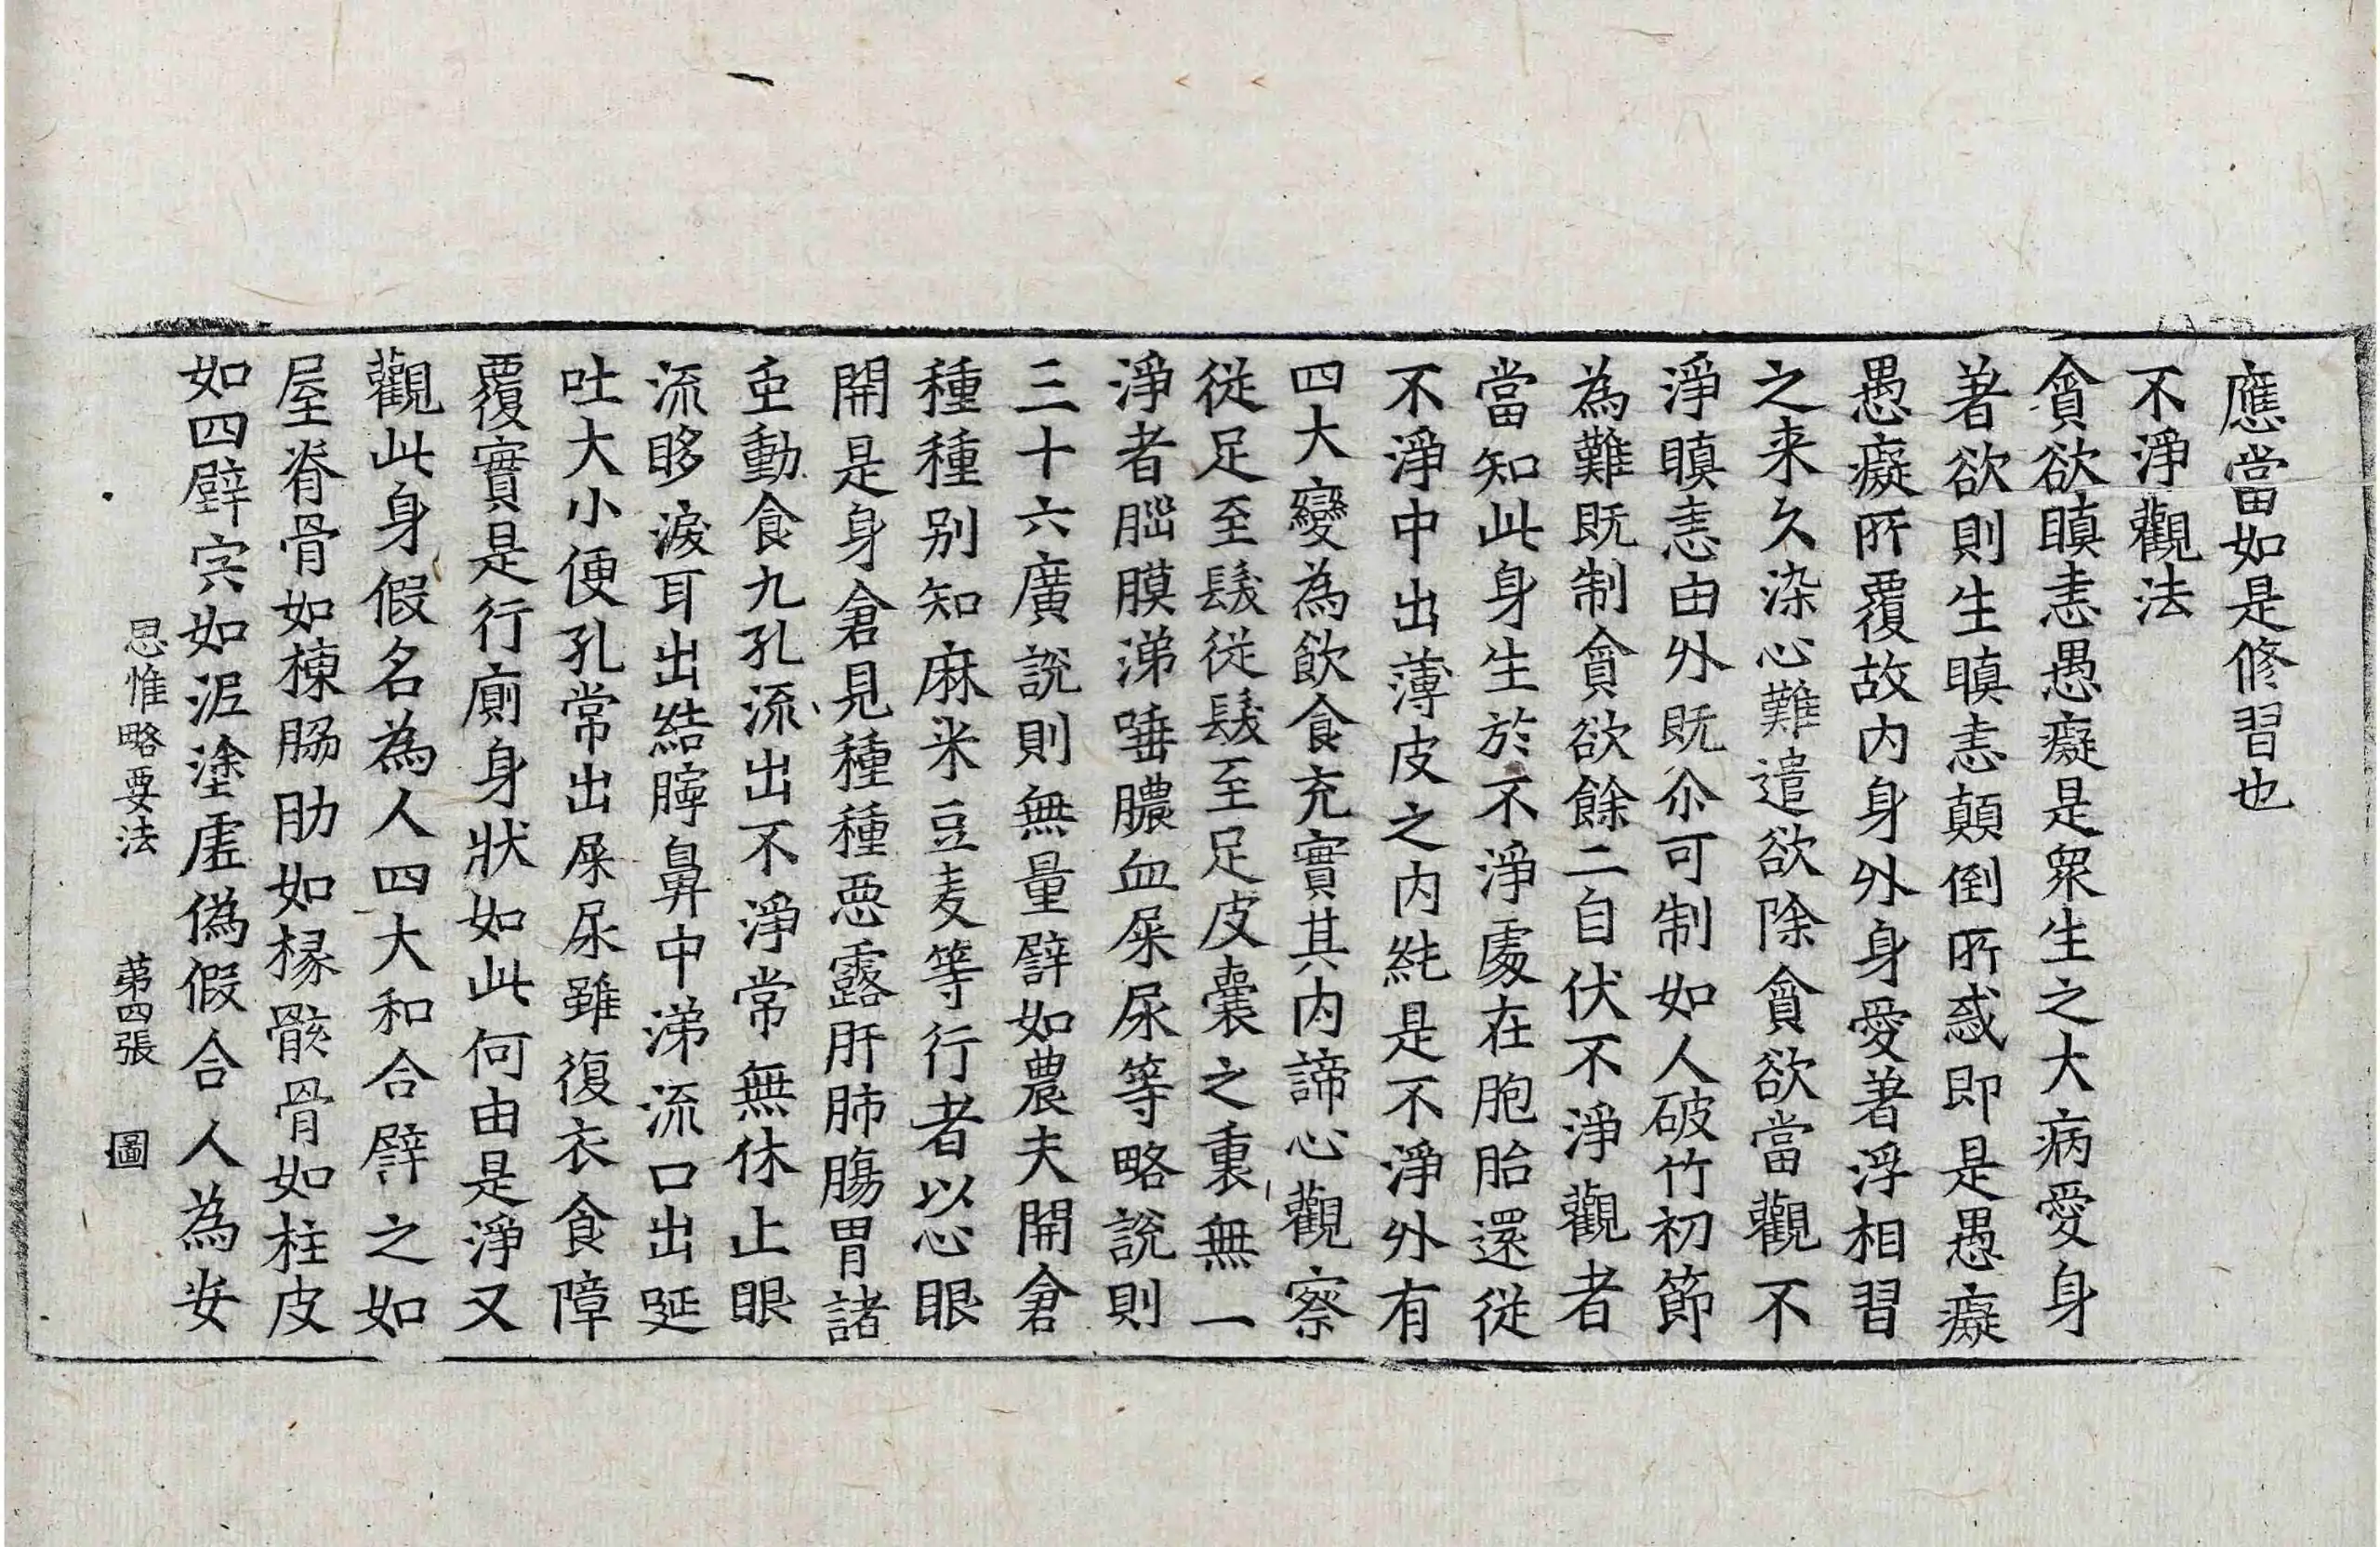 應當如是修習也
不淨觀法
貪欲瞋恚愚癡是眾生之大病愛身
著欲則生瞋恚顛倒所惑即是愚癡
愚癡所覆故內身外身愛著浮相習
之来久染心難遣欲除貪欲當觀不
淨瞋恚由外既尒可制如人破竹初節
為難既制貪欲餘二自伏不淨觀者
當知此身生於不淨處在胞胎還從
不淨中出薄皮之內純是不淨外有
四大變為飲食充實其內諦心觀察
從足至髮從髮至足皮囊之裏無一
淨者腦膜涕唾膿血屎尿等略說則
三十六廣說則無量譬如農夫開倉
種種別知麻米豆麦等行者以心眼
開是身倉見種種惡露肝肺腸胃諸
虫動食九孔流出不淨常無休止眼
流眵淚耳出結聹鼻中涕流口出唌
吐大小便孔常出屎尿雖復衣食障
覆實是行廁身狀如此何由是淨又
觀此身假名為人四大和合譬之如
屋脊骨如棟脇肋如椽骸骨如柱皮
如四壁宍如泥塗虛偽假合人為安
思惟略要法 第四張 圖